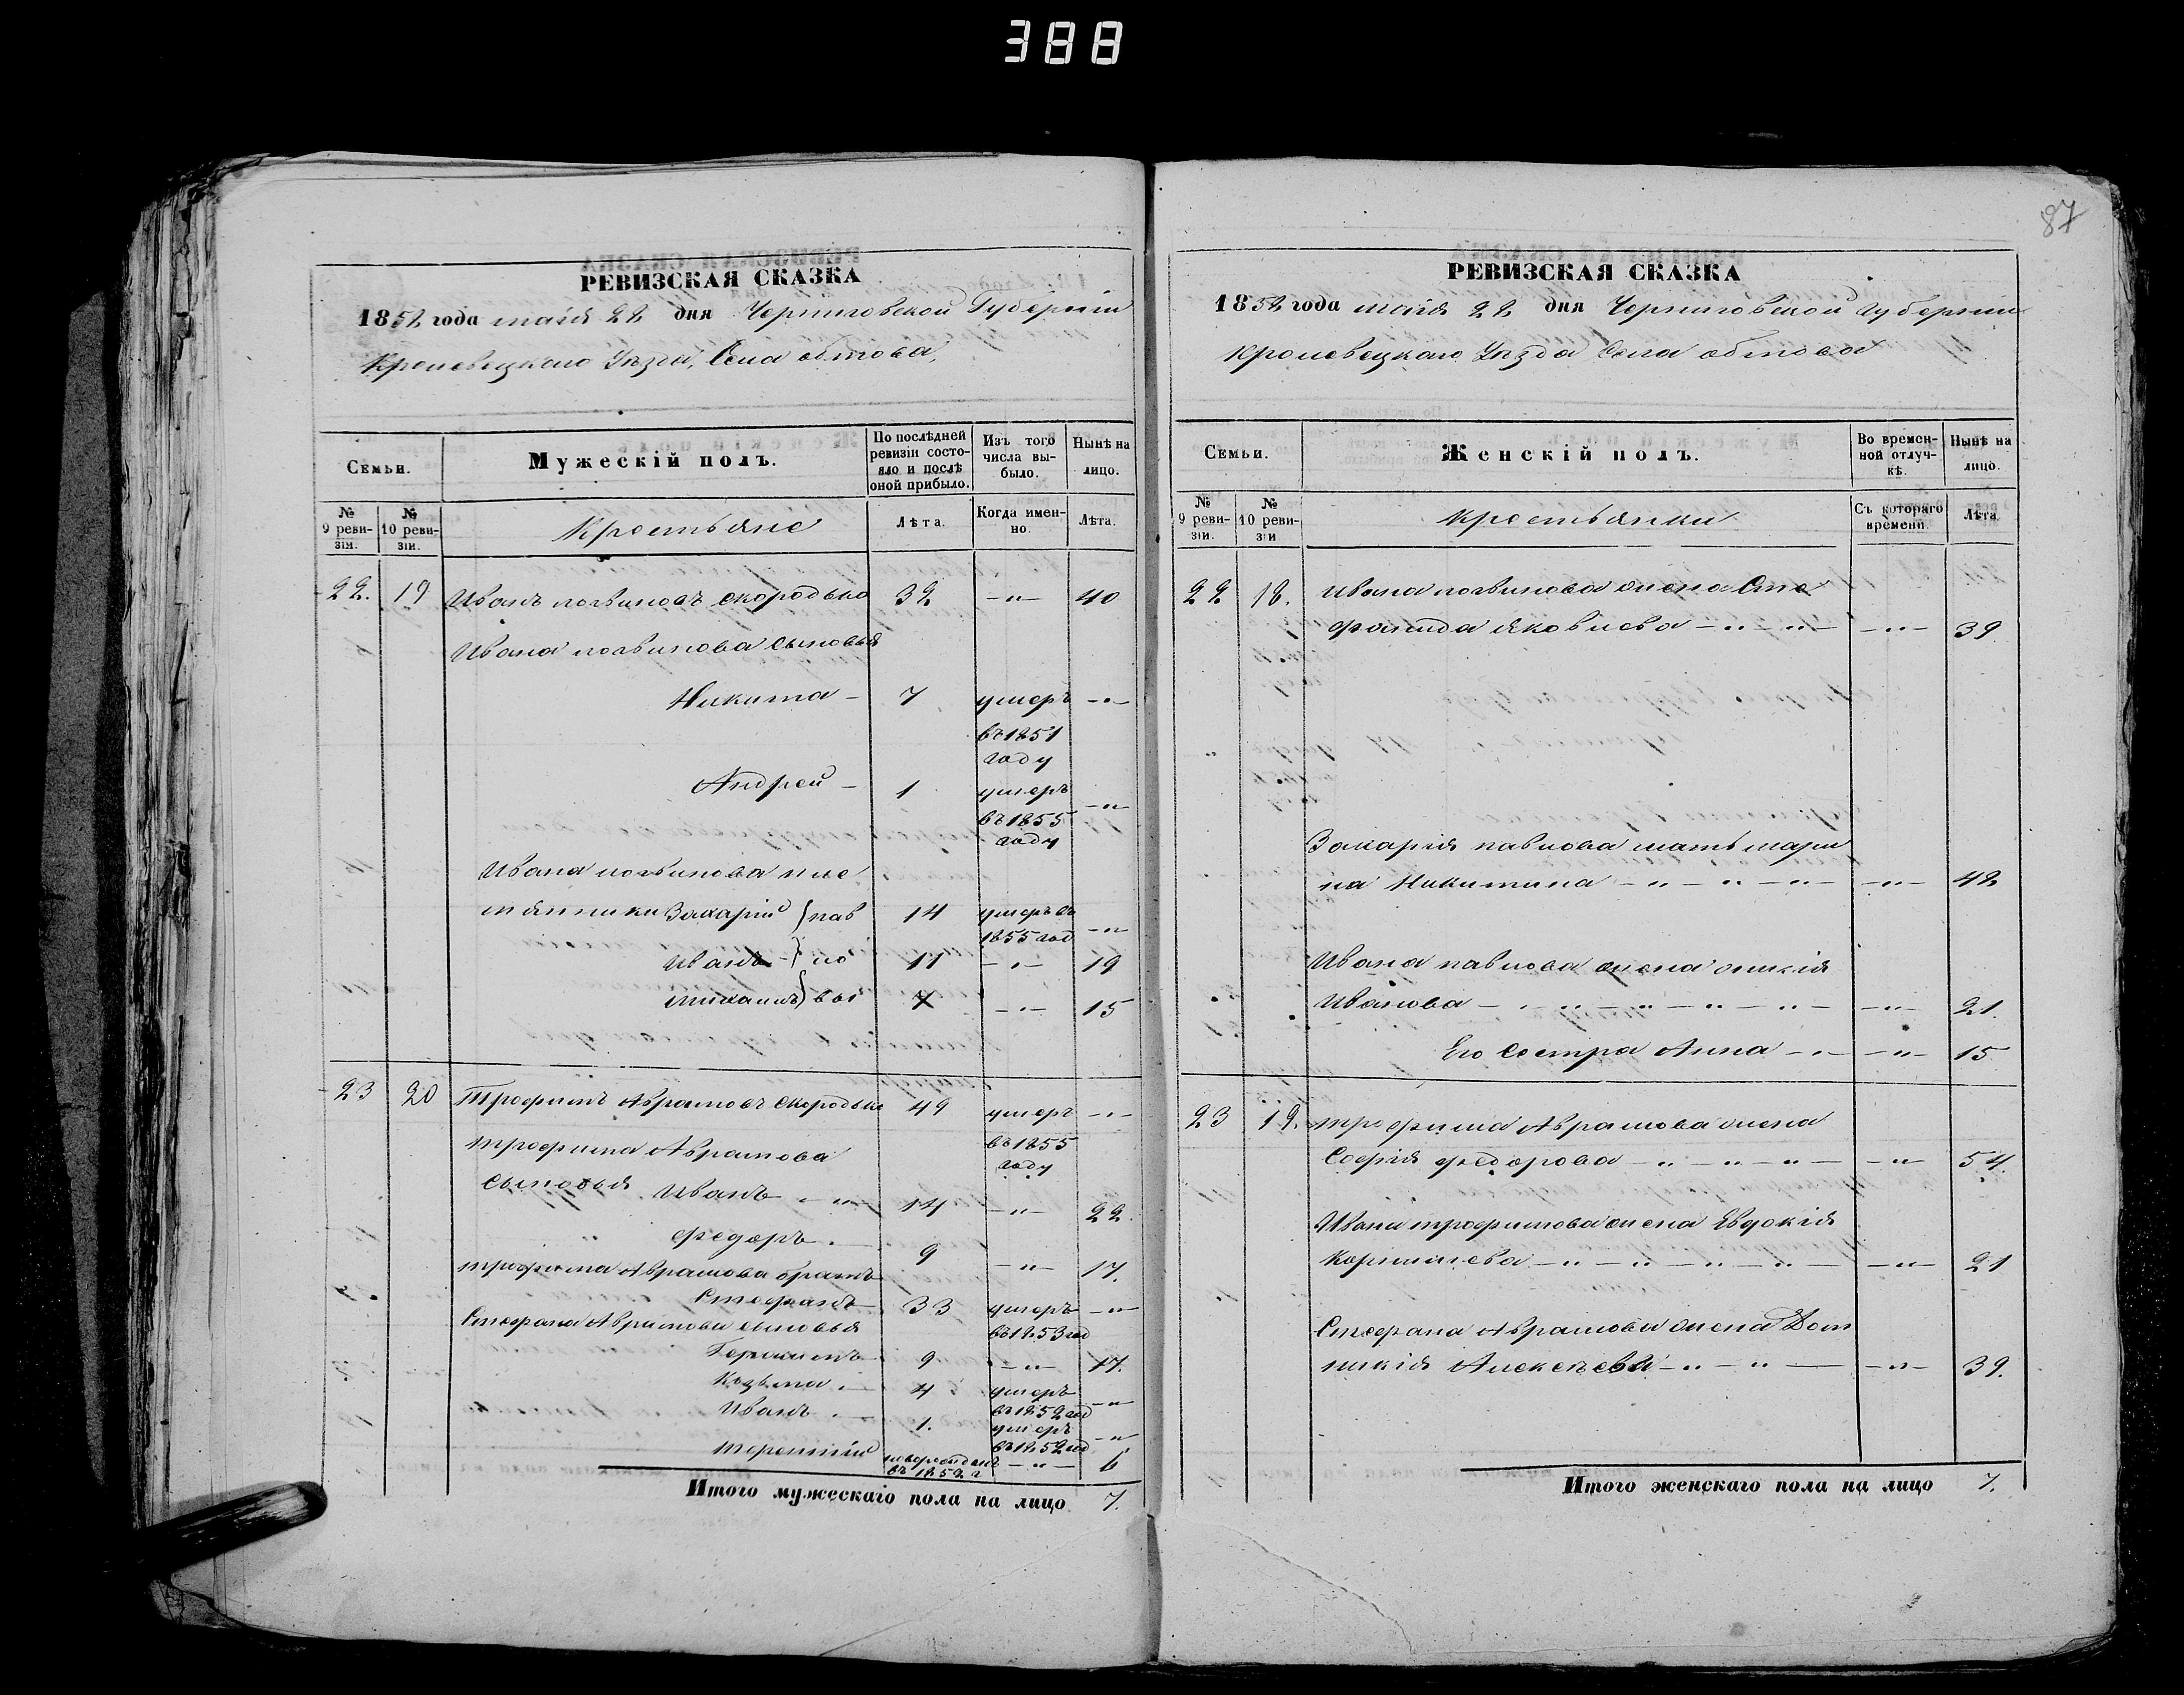 388
87
РЕВИЗСКАЯ СКАЗКА
1858 года маія 22 дня Черниговской Губерніи
Кролевецкаго Уѣзда, Села обтова,
Семьи.
Мужескій полъ.
По послѣдней ревизіи состояло и послѣ оной прибыло.
Изъ того числа выбыло.
Нынѣ на лицо.
№ 9 ревизіи.
№ 10 ревизіи.
Крестьяне
Лѣта.
Когда именно.
Лѣта.
22. 19 Иванъ логвиновъ скородько 32 —"— 40
Ивана логвинова сыновья
Никита — 7 умеръ —"—
въ 1851
году
Андрей — 1 умеръ —"—
въ 1855
году
Ивана логвинова пле
мянники Захарій } пав 14 умеръ въ —"—
1855 год
Иванъ — } ло 11 —"— 19
михаилъ } вы 7 —"— 15
23 20 Трофимъ Аврамовъ скородько 49 умеръ —"—
трофима Аврамова въ 1855
году
сыновья Иванъ —"— 14 —"— 22.
федоръ. — 9 —"— 17.
трофима Аврамова братъ
Стефанъ 33 умеръ —"—
Стефана Аврамова сыновья въ 1853 год
Герасимъ 9 —"— 17.
Козьма. — 4 умеръ —"—
въ 1852 год
Иванъ. — 1. умеръ —"—
въ 1852 год
терентій новорожденъ —"— 6
въ 1852 г
Итого мужескаго пола на лицо 7.
РЕВИЗСКАЯ СКАЗКА
1858 года маія 22 дня Черниговской губерніи
Кролевецкаго Уѣзда Села обтова
Семьи.
Женскій полъ.
Во временной отлучкѣ.
Нынѣ на лицо.
№ 9 ревизіи.
№ 10 ревизіи
крестьянки
Съ котораго времени.
Лѣта.
22 18. Ивана логвинова жена Сте
фанида яковлева —"—"— —"— 39
Захарія павлова мать мари
на Никитина —"—"—"— —"— 42
Ивана павлова жена
Иванова —"—"—"—"— —"— 21.
Его сестра Анна —"— —"— 15
23 19. трофима Аврамова жена
Софія федорова —"—"—"— —"— 54.
Ивана трофимова жена Евдокія
Корнилева —"—"—"—"— —"— 21
Стефана Аврамова жена Дом
никія Алексѣева —"—"— —"— 39.
Итого женскаго пола на лицо 7.